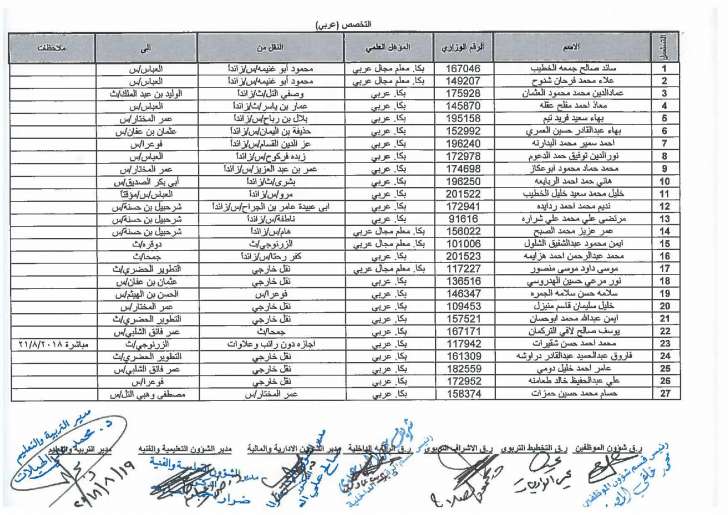 التخصص (عربي)
التسلسل الاسم الرقم الوزاري المؤهل العلمي النقل من الى ملاحظات
1 سائد صالح جمعه الخطيب 167046 بكا. معلم مجال عربي محمود أبو غنيمه/س/زائداً العباس/س
2 علاء محمد فرحان شدوح 149207 بكا. معلم مجال عربي محمود أبو غنيمه/س/زائداً العباس/س
3 عمادالدين محمد محمود العثمان 175928 بكا. عربي وصفي التل/ث/زائداً الوليد بن عبد الملك/ث
4 معاذ احمد مفلح عقله 145870 بكا. عربي عمار بن ياسر/ث/زائداً العباس/س
5 بهاء سعيد فريد تيم 195158 بكا. عربي بلال بن رباح/س/زائداً عمر المختار/س
6 بهاء عبدالقادر حسين العمري 152992 بكا. عربي حذيفة بن اليمان/س/زائداً عثمان بن عفان/س
7 احمد سمير محمد البدارنه 196240 بكا. عربي عز الدين القسام/س/زائداً فوعرا/س
8 نورالدين توفيق حمد الدعوم 172978 بكا. عربي زبده فركوح/س/زائداً العباس/س
9 محمد حماد محمود ابوعكاز 174698 بكا. عربي عمر بن عبد العزيز/س/زائداً عمر المختار/س
10 هاني حمد احمد الربايعه 196250 بكا. عربي بشرى/ث/زائداً أبي بكر الصديق/س
11 خليل محمد سعيد خليل الخطيب 201522 بكا. عربي مرو/س/زائداً العباس/س/مؤقتاً
12 نديم محمد احمد ردايده 172941 بكا. عربي ابي عبيدة عامر بن الجراح/س/زائداً شرحبيل بن حسنة/س
13 مرتضي علي محمد علي شراره 91616 بكا. عربي ناطفة/س/زائداً شرحبيل بن حسنة/س
14 عمر عزيز محمد الصبح 156022 بكا. معلم مجال عربي هام/س/زائداً شرحبيل بن حسنة/س
15 ايمن محمود عبدالشفيق الشلول 101006 بكا. معلم مجال عربي الزرنوجي/ث دوقره/ث
16 محمد عبدالرحمن احمد هزايمه 201523 بكا. عربي كفر رحتا/س/زائداً جمحا/ث
17 موسى داود موسى منصور 117227 بكا. معلم مجال عربي نقل خارجي التطوير الحضري/ث
18 نور مرعي حسين الهدروسي 136516 بكا. عربي نقل خارجي عثمان بن عفان/س
19 سلامه حسن سلامه الجمره 146347 بكا. عربي فوعرا/س الحسن بن الهيثم/س
20 خليل سليمان قاسم منيزل 109453 بكا. عربي نقل خارجي عمر المختار/س
21 ايمن عبدالله محمد ابوحسان 157521 بكا. عربي نقل خارجي التطوير الحضري/ث
22 يوسف صالح لافي التركمان 167171 بكا. عربي جمحا/ث عمر فائق الشلبي/س
23 محمد احمد حسن شقيرات 117942 بكا. عربي اجازه دون راتب وعلاوات الزرنوجي/ث مباشرة ٢١/٨/٢٠١٨
24 فاروق عبدالحميد عبدالقادر دراوشه 161309 بكا. عربي نقل خارجي التطوير الحضري/ث
25 عامر احمد خليل دومي 182559 بكا. عربي نقل خارجي عمر فائق الشلبي/س
26 علي عبدالحفيظ خالد طعامنه 172952 بكا. عربي نقل خارجي فوعرا/س
27 حسام محمد حسين حمزات 158374 بكا. عربي عمر المختار/س مصطفى وهبي التل/س
ر.ق شؤون الموظفين ر.ق التخطيط التربوي ر.ق الاشراف التربوي ر.ق الرقابة الداخلية مدير الشؤون الادارية والمالية مدير الشؤون التعليمية والفنية مدير التربية والتعليم
مدير التربية والتعليم
رئيس قسم شؤون الموظفين